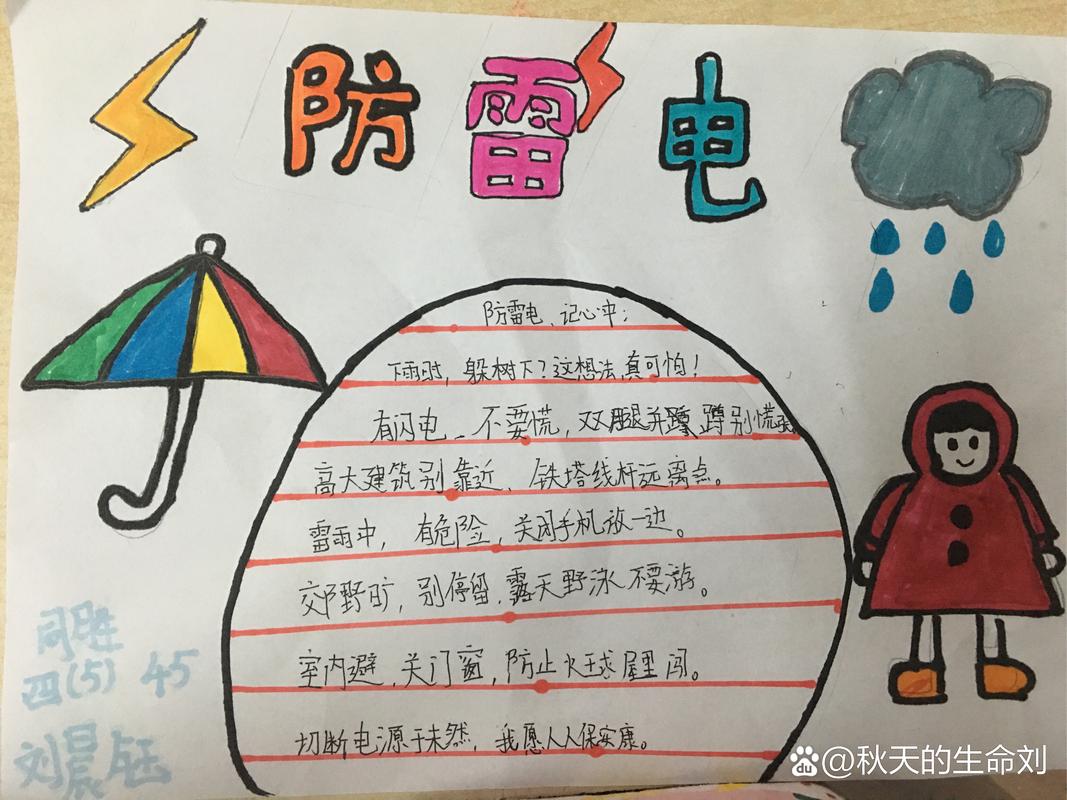 防雷电
防雷电、记心中：
下雨时，躲树下？这想法，真可怕！
有闪电、不要慌，双腿并蹲蹲别慌张
高大建筑别靠近、铁塔线杆远离点。
雷雨中，有危险，关闭手机放一边。
郊野旷，别停留，露天野泳不要游。
室内避，关门窗，防止火球屋里闯。
切断电源于未然，我愿人人保安康。
同胜
四(5) 45
刘晨钰
@秋天的生命刘